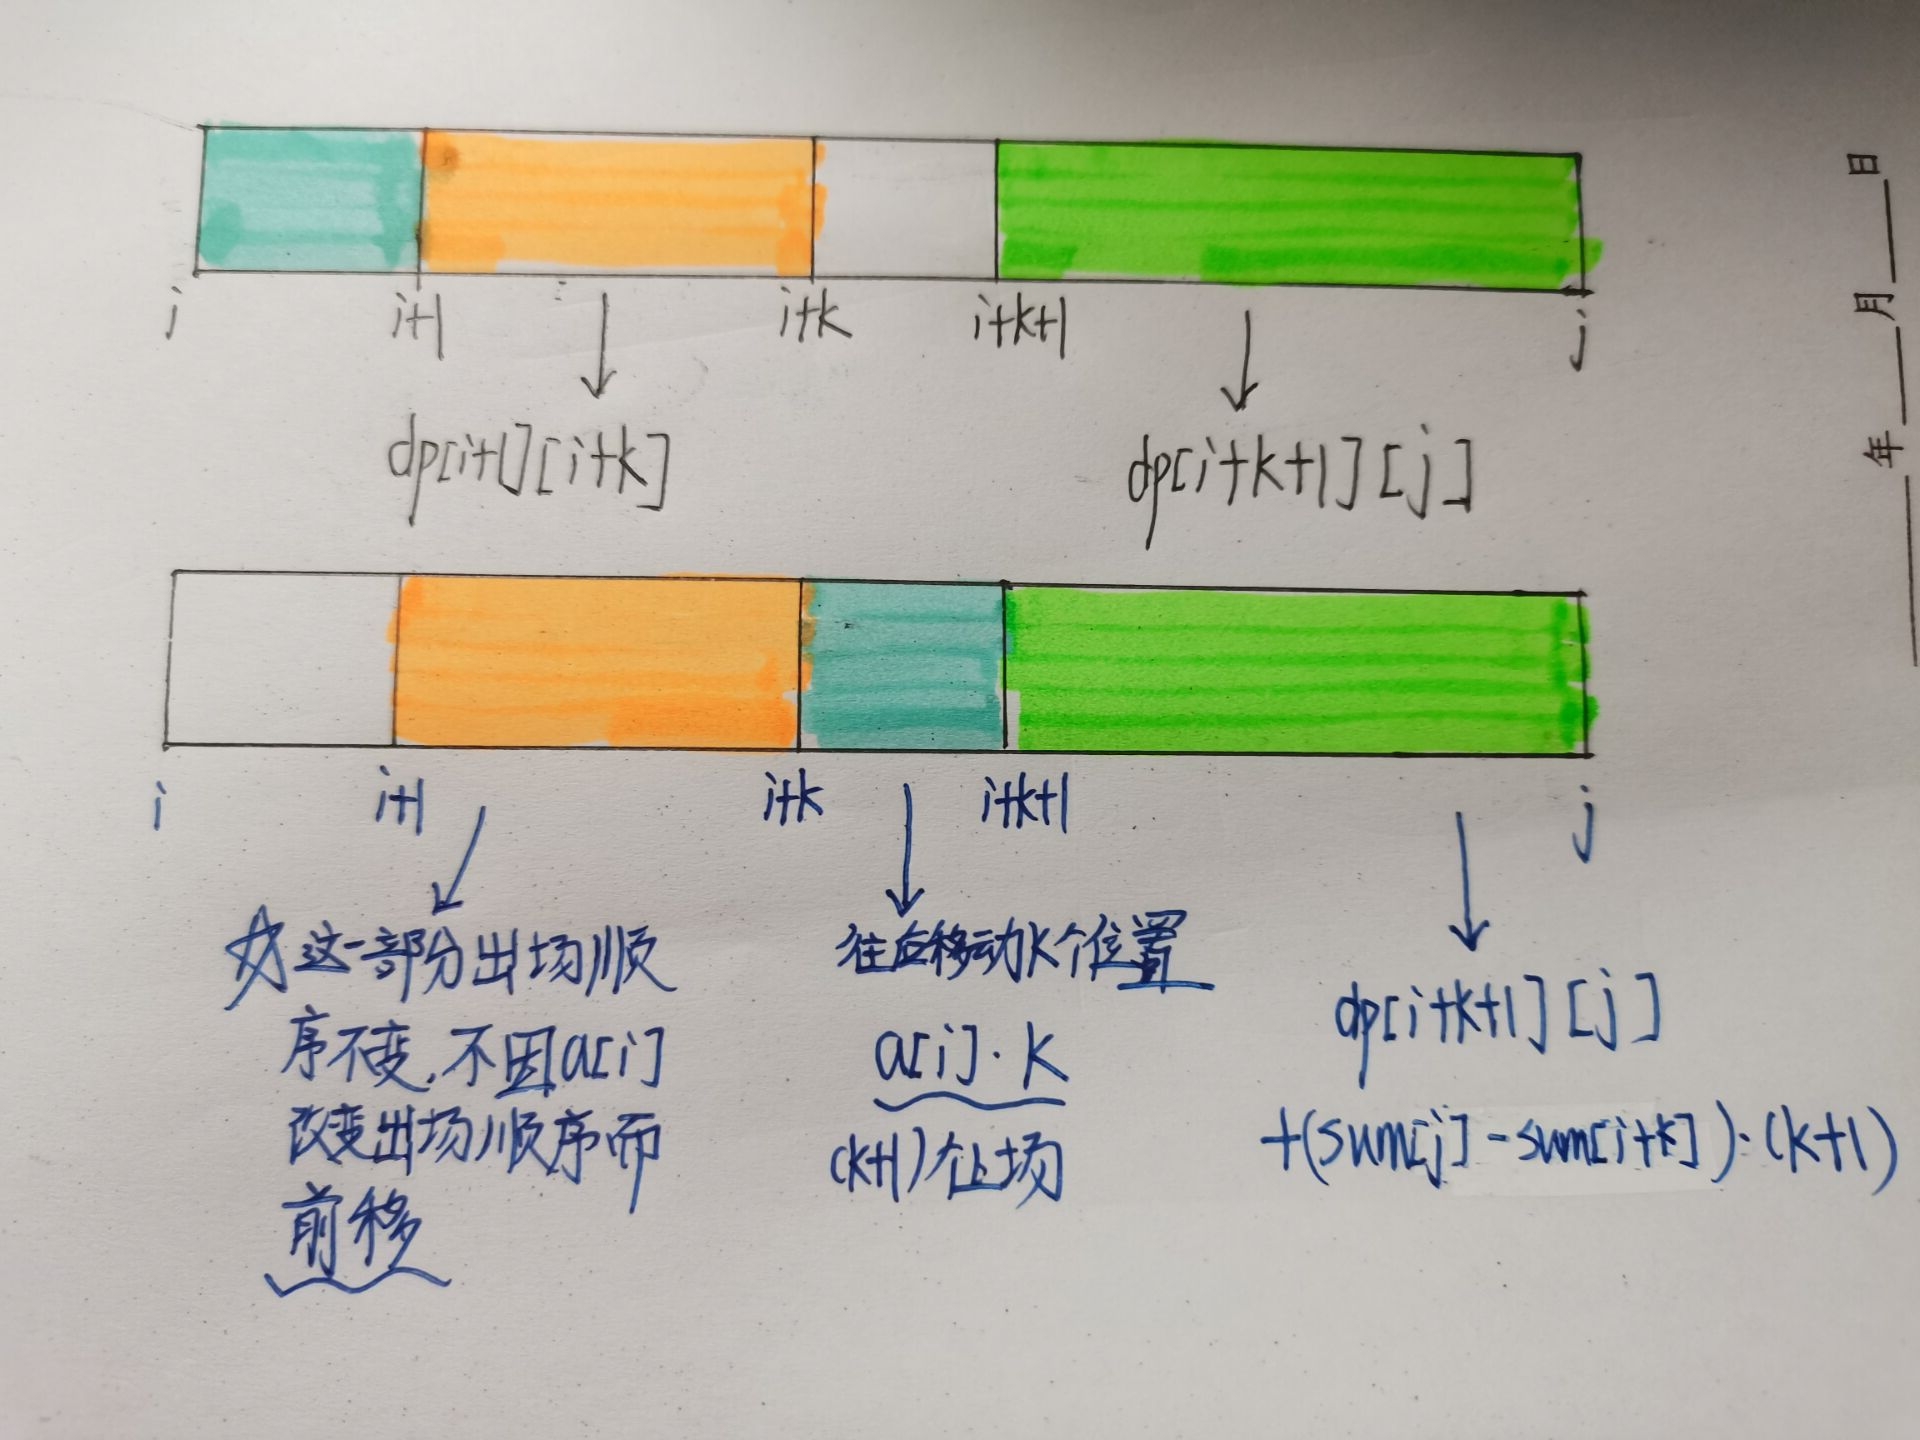 i i+1 i+k i+k+1 j
dp[i+1][i+k] dp[i+k+1][j]
i i+1 i+k i+k+1 j
☆这一部分出场顺
序不变,不因a[i]
改变出场顺序而
前移
往后移动k个位置
a[i]·k
(k+1)个出场
dp[i+k+1][j]
+(sum[j]-sum[i+k])·(k+1)
年 月 日